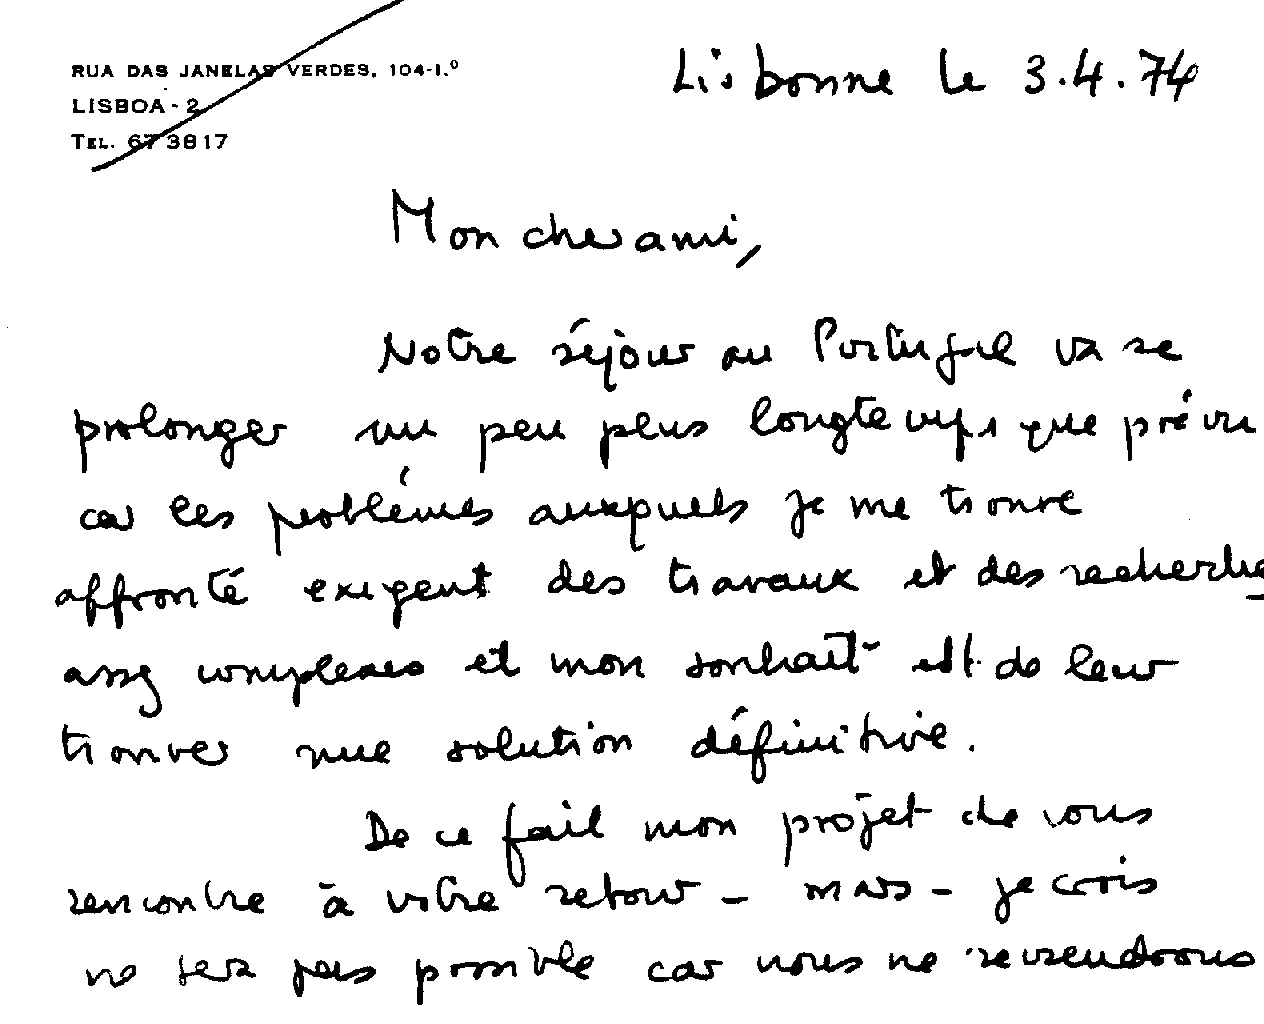 RUA DAS JANELAS VERDES, 104-1.º
LISBOA - 2
TEL. 67 3817
Lisbonne le 3.4.74
Mon cher ami,
Notre séjour au Portugal va se
prolonger un peu plus longtemps que prévu
car les problémes auxquels je me trouve
affronté exigent des travaux et des recherches
assez complexes et mon souhait est de leur
trouver une solution définitive.
De ce fait mon projet de vous
rencontre à votre retour - mars - je crois
ne sera pas possible car nous ne reviendrons